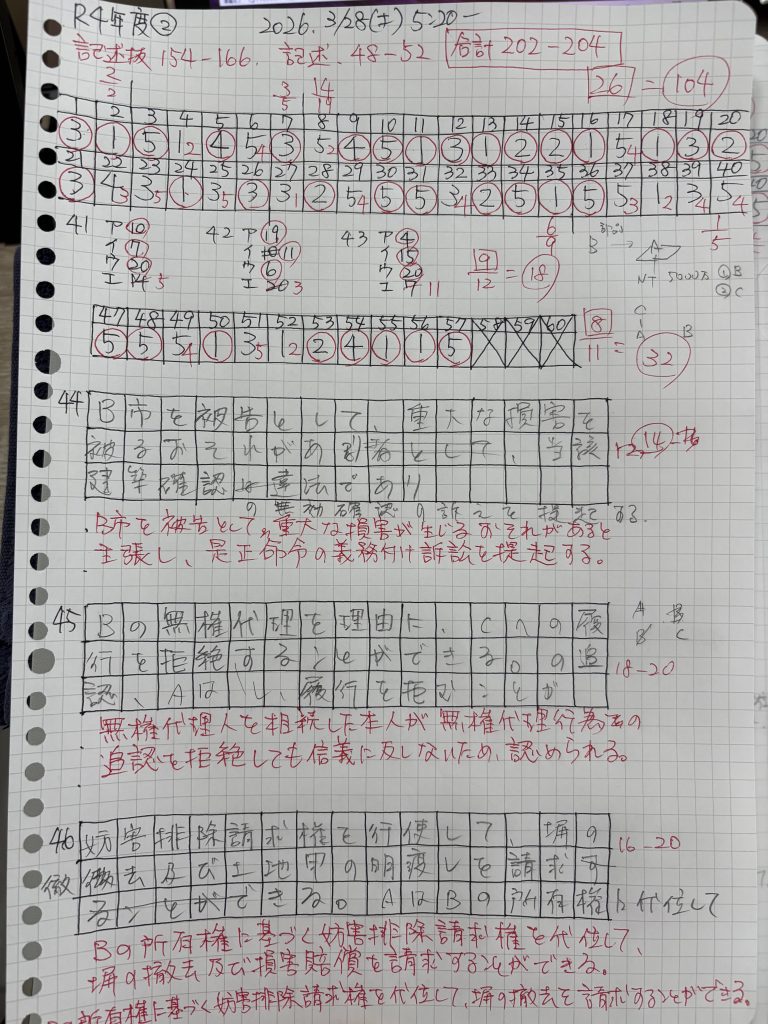 R4年度② 2026. 3/28(土) 5:20ー
記述抜 154-166. 記述. 48-52 合計 202-204
2/2 3/5 14/19 26 = 104
2 3 4 5 6 7 8 9 10 11 12 13 14 15 16 17 18 19 20
3 1 5 1 2 4 5 4 3 5 2 4 5 1 3 1 2 2 1 5 4 1 3 2
21 22 23 24 25 26 27 28 29 30 31 32 33 34 35 36 37 38 39 40
3 4 3 3 5 1 3 5 3 3 1 2 5 4 5 5 3 4 2 5 1 5 5 3 1 2 3 4 5 4
41 ア 10 42 ア 19 43 ア 4 6/9 B A 1/5
イ 7 イ 11 イ 15
ウ 20 ウ 6 ウ 20 19/12 = 18 5000万 ①B
エ 14 5 エ 20 3 エ 7 11 ②C
47 48 49 50 51 52 53 54 55 56 57 58 59 60 8/11 = 32
5 5 5 4 1 3 5 1 2 2 4 1 1 5
C A B
44 B市を被告として、重大な損害を
被るおそれがある者として、当該 14
建築確認は違法であり
の無効確認の訴えを提起する.
B市を被告として、重大な損害が生じるおそれがあると
主張し、是正命令の義務付け訴訟を提起する。
45 Bの無権代理を理由に、Cへの履 A B
行を拒絶することができる。の追 B C 18-20
認、Aは し、履行を拒むことが
無権代理人を相続した本人が無権代理行為の
追認を拒絶しても信義に反しないため、認められる。
46 妨害排除請求権を行使して、塀の 16-20
徹 撤去及び土地甲の明渡しを請求す
ることができる。AはBの所有権に代位して
Bの所有権に基づく妨害排除請求権を代位して、
塀の撤去及び損害賠償を請求することができる。
所有権に基づく妨害排除請求権を代位して、塀の撤去を請求することができる。